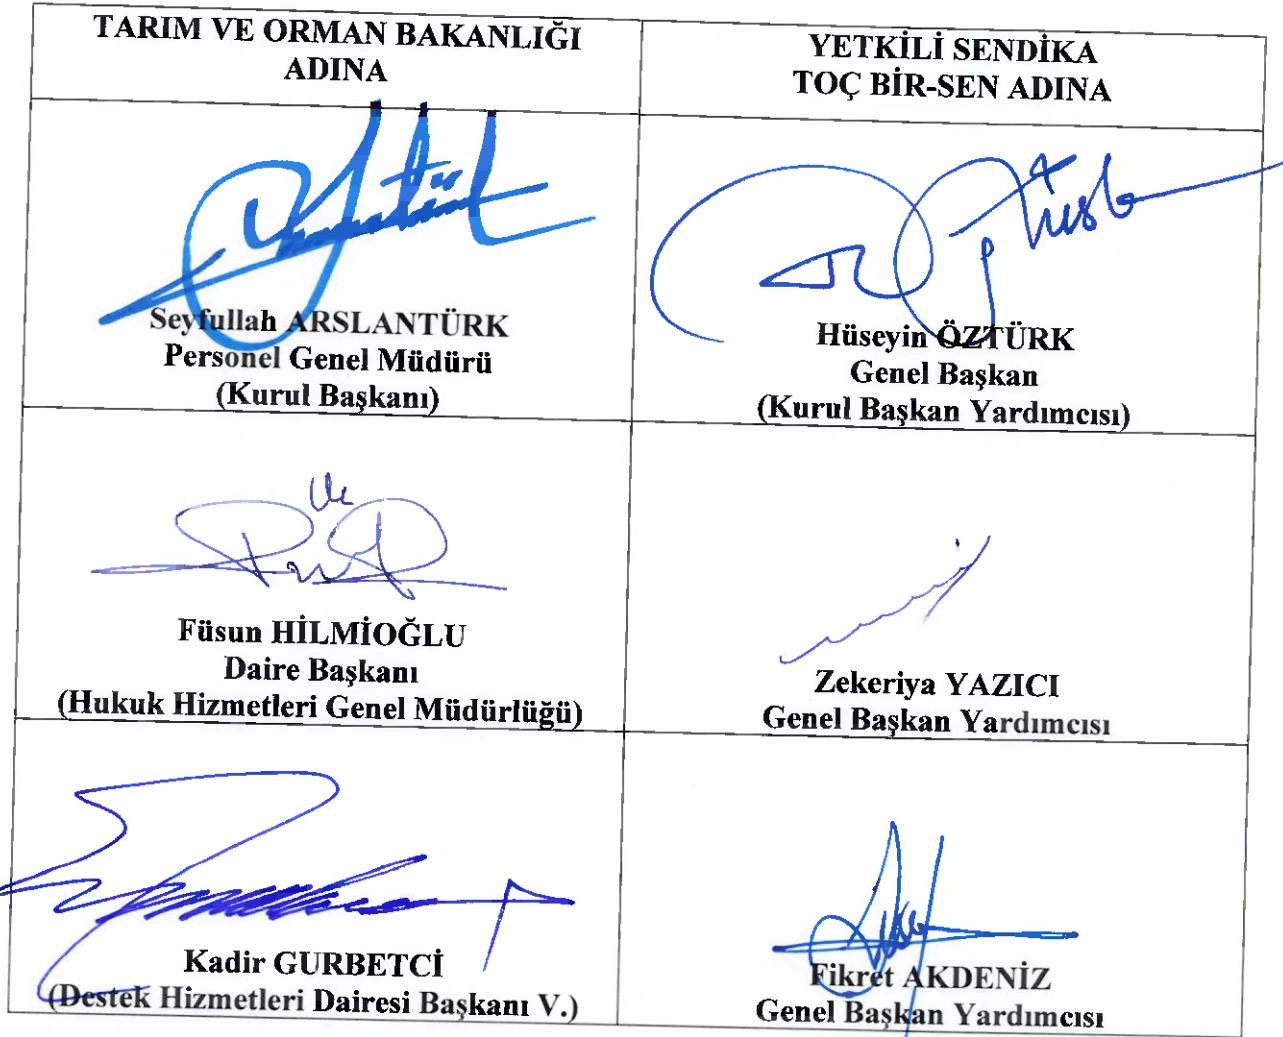 TARIM VE ORMAN BAKANLIĞI
ADINA
YETKİLİ SENDİKA
TOÇ BİR-SEN ADINA
Seyfullah ARSLANTÜRK
Personel Genel Müdürü
(Kurul Başkanı)
Hüseyin ÖZTÜRK
Genel Başkan
(Kurul Başkan Yardımcısı)
Füsun HİLMİOĞLU
Daire Başkanı
(Hukuk Hizmetleri Genel Müdürlüğü)
Zekeriya YAZICI
Genel Başkan Yardımcısı
Kadir GURBETCİ
(Destek Hizmetleri Dairesi Başkanı V.)
Fikret AKDENİZ
Genel Başkan Yardımcısı